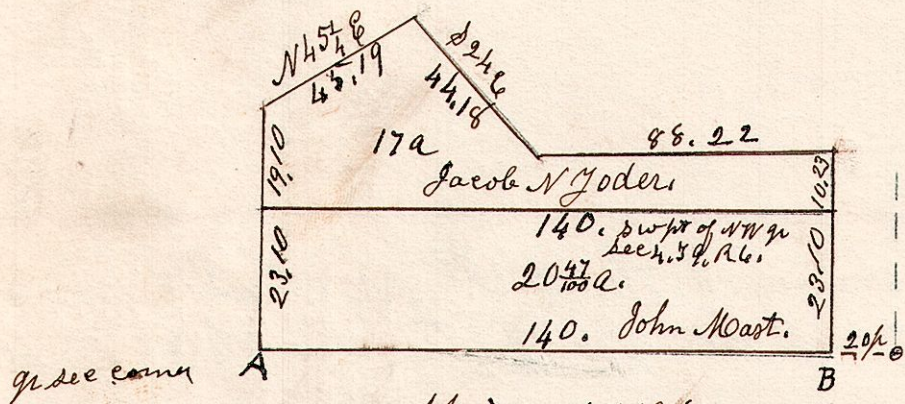 N45¼E
45.19
S24E
44.18
88.22
19.10
17a
10.23
Jacob N Yoder.
140. sw pt of NW qr
sec 4, T 9, R 6.
23.10
20 47/100 a.
23.10
140. John Mast.
20p
qr sec corner
A
B